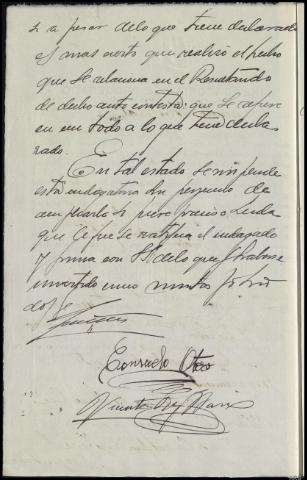 y a pesar de lo que tiene declarado
es mas corto que realizó el hecho
que se relaciona en el Resultando
de dicho auto contesta: que se refiere
en un todo a lo que tiene decla-
rado.
En tal estado se suspende
esta indagatoria sin perjuicio de
ampliarla si fuere preciso. Leida
que le fue se ratifica el indagado
y firma con SS de lo que
invertido como
doy fe
Consuelo Otero
Vicente Rey